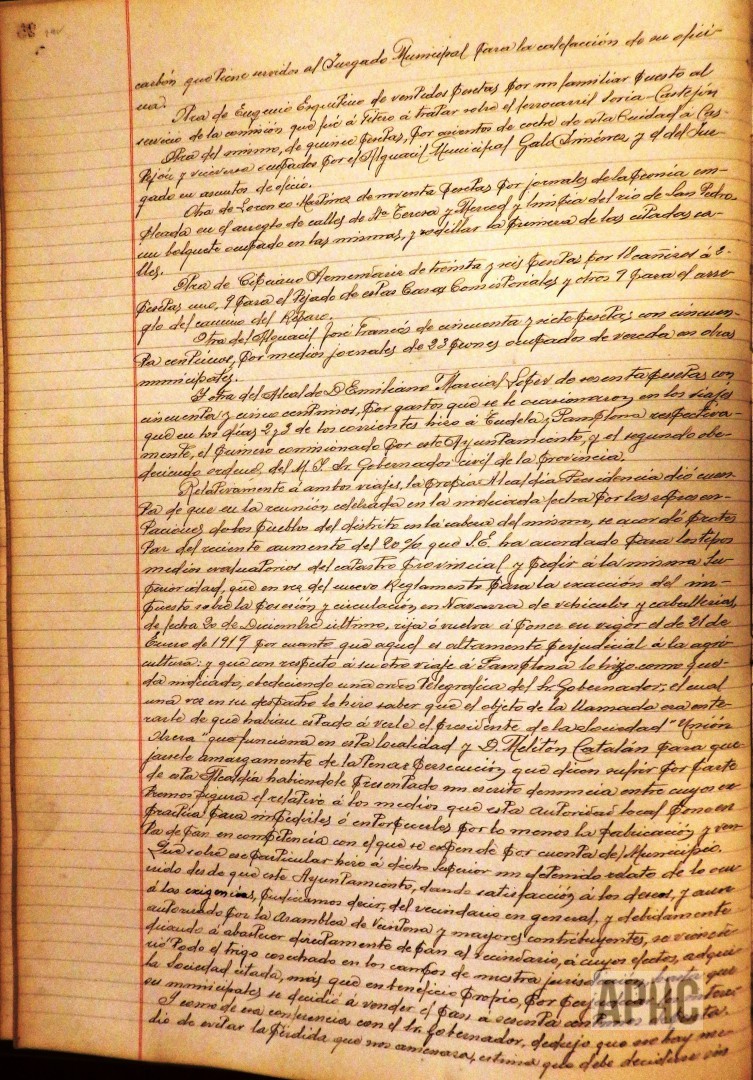 carbón que tiene servidos al Juzgado Municipal para la calefacción de su ofici-
na.
Otra de Eugenio Esquitino de ventidos pesetas por un familiar puesto al
servicio de la comisión que fué á Fitero á tratar sobre el ferrocarril Soria-Castejón
Otra del mismo, de quince pesetas, por asientos de coche de esta Ciudad á Cas-
tejón y viceversa ocupados por el Alguacil Municipal Galo Jiménez y el del Juz-
gado en asuntos de oficio.
Otra de Lorenzo Martínez de noventa pesetas por jornales de la peonía em-
pleada en el arreglo de calles de Sta Teresa y Merced y limpia del río de San Pedro,
un bolquete ocupado en las mismas, y rodillar la primera de las citadas ca-
lles.
Otra de Cipriano de treinta y seis pesetas por 18 cañizos á 2
pesetas uno, 9 para el tejado de estas Casas Consistoriales y otros 9 para el arre-
glo del camino del
Otra del Alguacil José Francés de cincuenta y siete pesetas con cincuen-
ta centimos, por medios jornales de 23 peones ocupados de vereda en obras
municipales.
Y otra del Alcalde D. Emiliano Marcial López de sesenta pesetas con
cincuenta y cinco centimos, por gastos que se le ocasionaron en los viajes
que en los días 2 y 3 de los corrientes hizo á Tudela y Pamplona respectiva-
mente, el primero comisionado por este Ayuntamiento, y el segundo obe-
deciendo ordenes del M. I. Sr. Gobernador civil de la provincia.
Relativamente á ambos viajes, la propia Alcaldía Presidencia dió cuen-
ta de que en la reunión celebrada en la indicada fecha por las represen-
taciones de los pueblos del distrito en la cabeza del mismo, se acordó protes-
tar del reciente aumento del 20% que S.E. ha acordado para los tipos
medios evaluatorios del catastro provincial y pedir á la misma Su-
perioridad, que en vez del nuevo Reglamento para la exacción del im-
puesto sobre la posesión y circulación en Navarra de vehículos y caballerías,
de fecha 20 de Diciembre último, rija ó vuelva á poner en vigor el de 21 de
Enero de 1919 por cuanto que aquel es altamente perjudicial á la agri-
cultura: y que con respecto á su otro viaje á Pamplona lo hizo como que-
da indicado, obedeciendo una orden telegráfica del Sr. Gobernador, el cual
una vez en su despacho le hizo saber que el objeto de la llamada era ente-
rarle de que habían estado á verle el presidente de la Sociedad "Unión
Obrera" que funciona en esta localidad y D. Melitón Catalán para que-
jarsele amargamente de la tenaz persecución que dicen sufrir por parte
de esta Alcaldía habiendole presentado un escrito denuncia entre cuyos ex-
tremos figura el relativo á los medios que esta autoridad local pone en
práctica para impedirles ó entorpecerles por lo menos la fabricación y ven-
ta de pan en competencia con el que se expende por cuenta del Municipio.
Que sobre ese particular hizo á dicho Superior un detenido relato de lo ocu-
rrido desde que este Ayuntamiento, dando satisfacción á los deseos, y aun
á las exigencias, pudieramos decir, del vecindario en general, y debidamente
autorizado por la Asamblea de Veintena y mayores contribuyentes, se viene de-
dicando á abastecer directamente de pan al vecindario, á cuyos efectos, adqui-
rió todo el trigo cosechado en los campos de nuestra
la Sociedad citada, más que en beneficio propio, por
ses municipales se decidió á vender el pan á sesenta
Y como de esa conferencia con el Sr. Gobernador, dedujo que no hay me-
dio de evitar la pérdida que nos amenaza, estima que debe decidirse
APHC